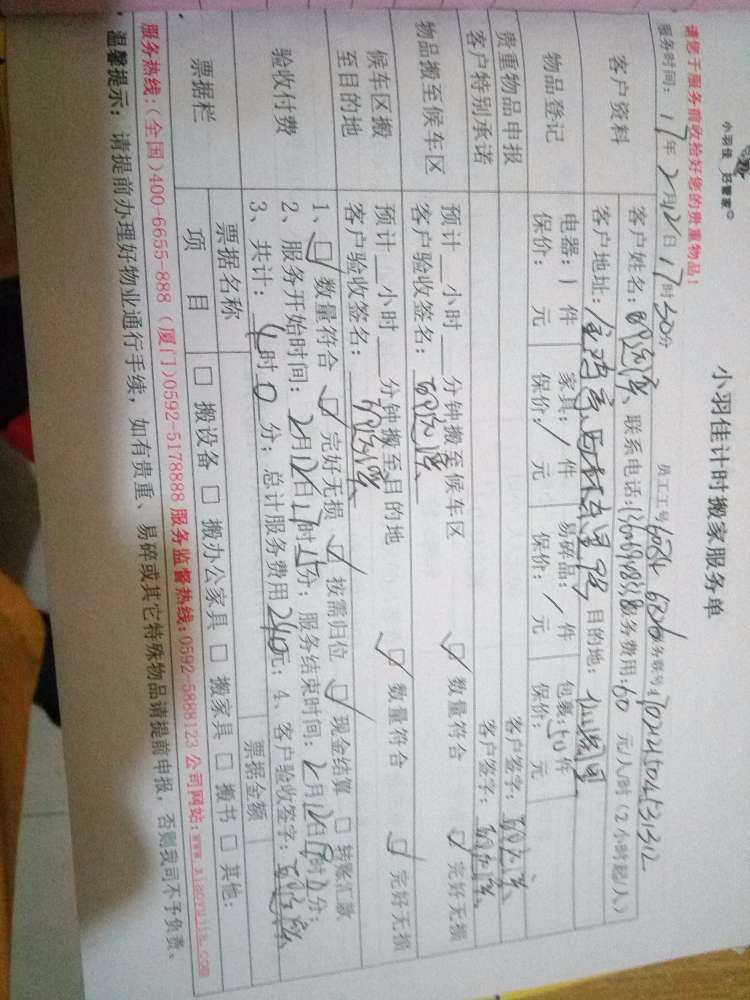 小羽佳 好管家
小羽佳计时搬家服务单
请您于服务前收拾好您的贵重物品！
服务时间：17年2月12日17时30分 员工工号 服务账号
客户资料
客户姓名： 联系电话： 服务费用：60 元/人/时（2小时起/人）
客户地址： 目的地：
物品登记
电器：1 件 家具：/ 件 易碎品：/ 件 包裹：50件
保价： 元 保价： 元 保价： 元 保价： 元
贵重物品申报 客户签字：
客户特别承诺 客户签字：
物品搬至候车区
预计__小时___分钟搬至候车区 数量符合 完好无损
客户验收签名：
候车区搬至目的地
预计__小时___分钟搬至目的地 数量符合 完好无损
客户验收签名：
验收付费
1、 数量符合 完好无损 按需归位 现金结算 □ 转账汇款
2、服务开始时间：2月12日 时 分；服务结束时间：2月12日 时 分；
3、共计：4时0分；总计服务费用240元；4、客户验收签字：
票据栏
票据名称 票据金额
项 目 □ 搬设备 □ 搬办公家具 □ 搬家具 □ 搬书 □ 其他：
服务热线：(全国)400-6655-888 (厦门)0592-5178888 服务监督热线：0592-5888123 公司网站：www.xiaoyujia.com
温馨提示：请提前办理好物业通行手续，如有贵重、易碎或其它特殊物品请提前申报，否则我司不予负责。